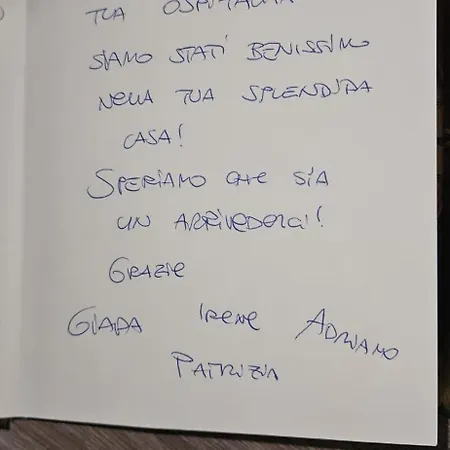 TUA OSPITALITÀ
SIAMO STATI BENISSIMO
NELLA TUA SPLENDIDA
CASA!
SPERIAMO CHE SIA
UN ARRIVEDERCI!
GRAZIE
GIADA IRENE ADRIANO
PATRIZIA